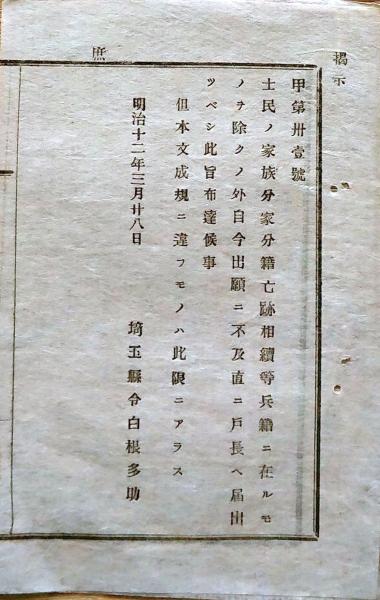 掲示
庶
甲第卅壹號
士民ノ家族分家分籍亡跡相續等兵籍ニ在ルモ
ノヲ除クノ外自今出願ニ不及直ニ戸長ヘ届出
ツベシ此旨布達候事
但本文成規ニ違フモノハ此限ニアラス
明治十二年三月廿八日
埼玉縣令白根多助